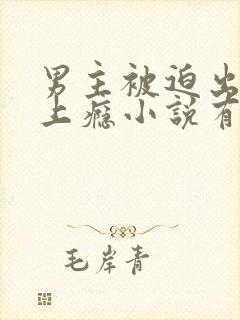 男主被迫出
上瘾小説有
毛岸青